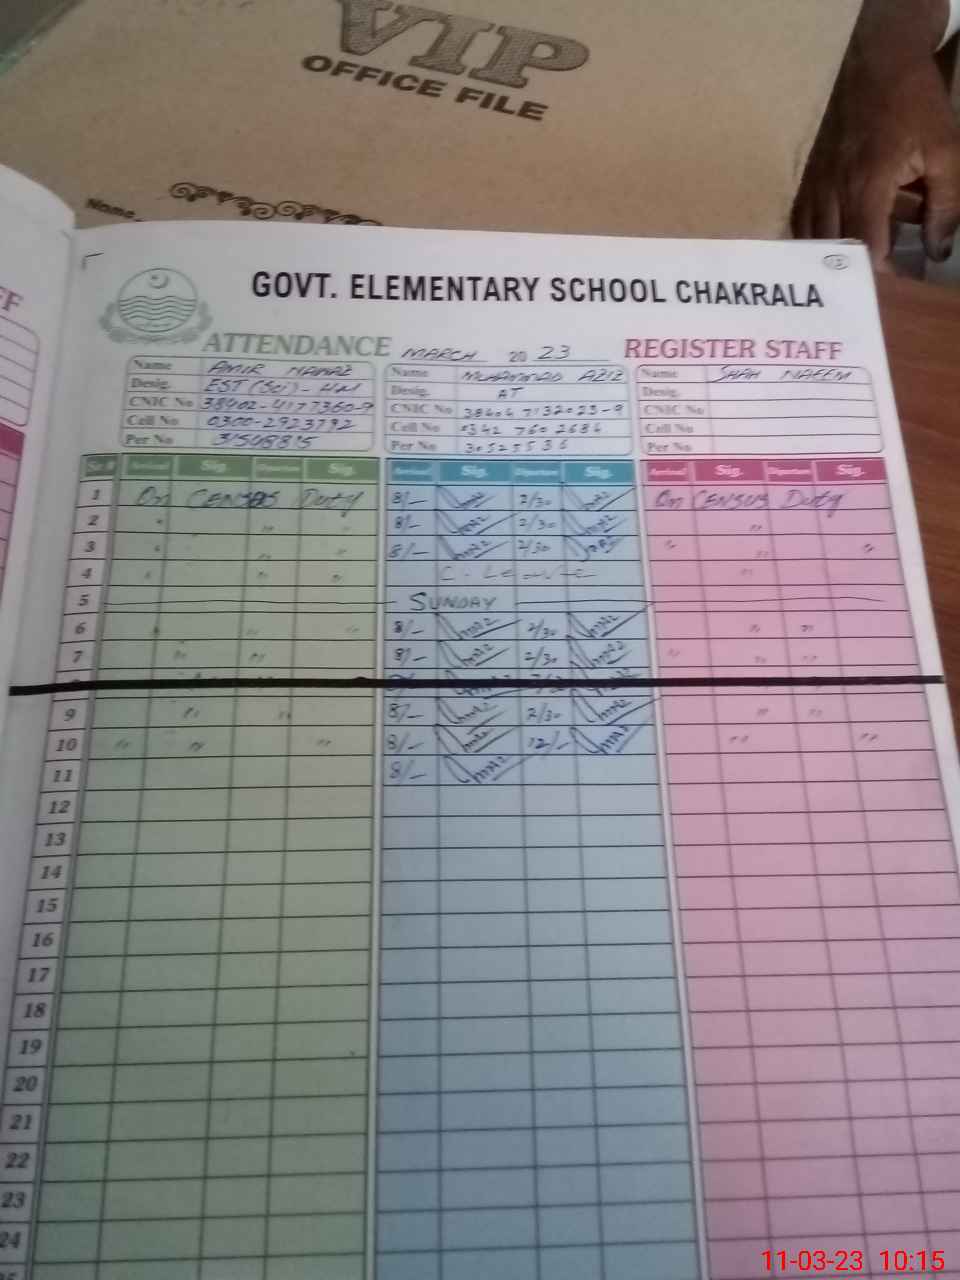 VIP
OFFICE FILE
Name
13
GOVT. ELEMENTARY SCHOOL CHAKRALA
ATTENDANCE MARCH 2023 REGISTER STAFF
Name AMIR NAWAZ Name MUHAMMAD AZIZ Name SHAH NAEEM
Desig. EST (Sci) - Desig. AT Desig.
CNIC No 38402-4177360-9 CNIC No 38404 7132023-9 CNIC No
Cell No 0300-2923792 Cell No 0342 760 2684 Cell No
Per No Per No 30525536 Per No
Sr.# Arrival Sig. Diparture Sig. Arrival Sig. Diparture Sig. Arrival Sig. Diparture Sig.
1 On CENSUS Duty 8/- 2/30 On CENSUS Duty
2 " 8/- 2/30 "
3 " " " 8/- 2/30 " " "
4 " " " C. Leave "
5 SUNDAY
6 " " " 8/- 2/30 " "
7 " " 8/- 2/30 " " "
9 " " 8/- 2/30 " "
10 " " " 8/- 12/- " "
11 8/-
12
13
14
15
16
17
18
19
20
21
22
23
24
11-03-23 10:15